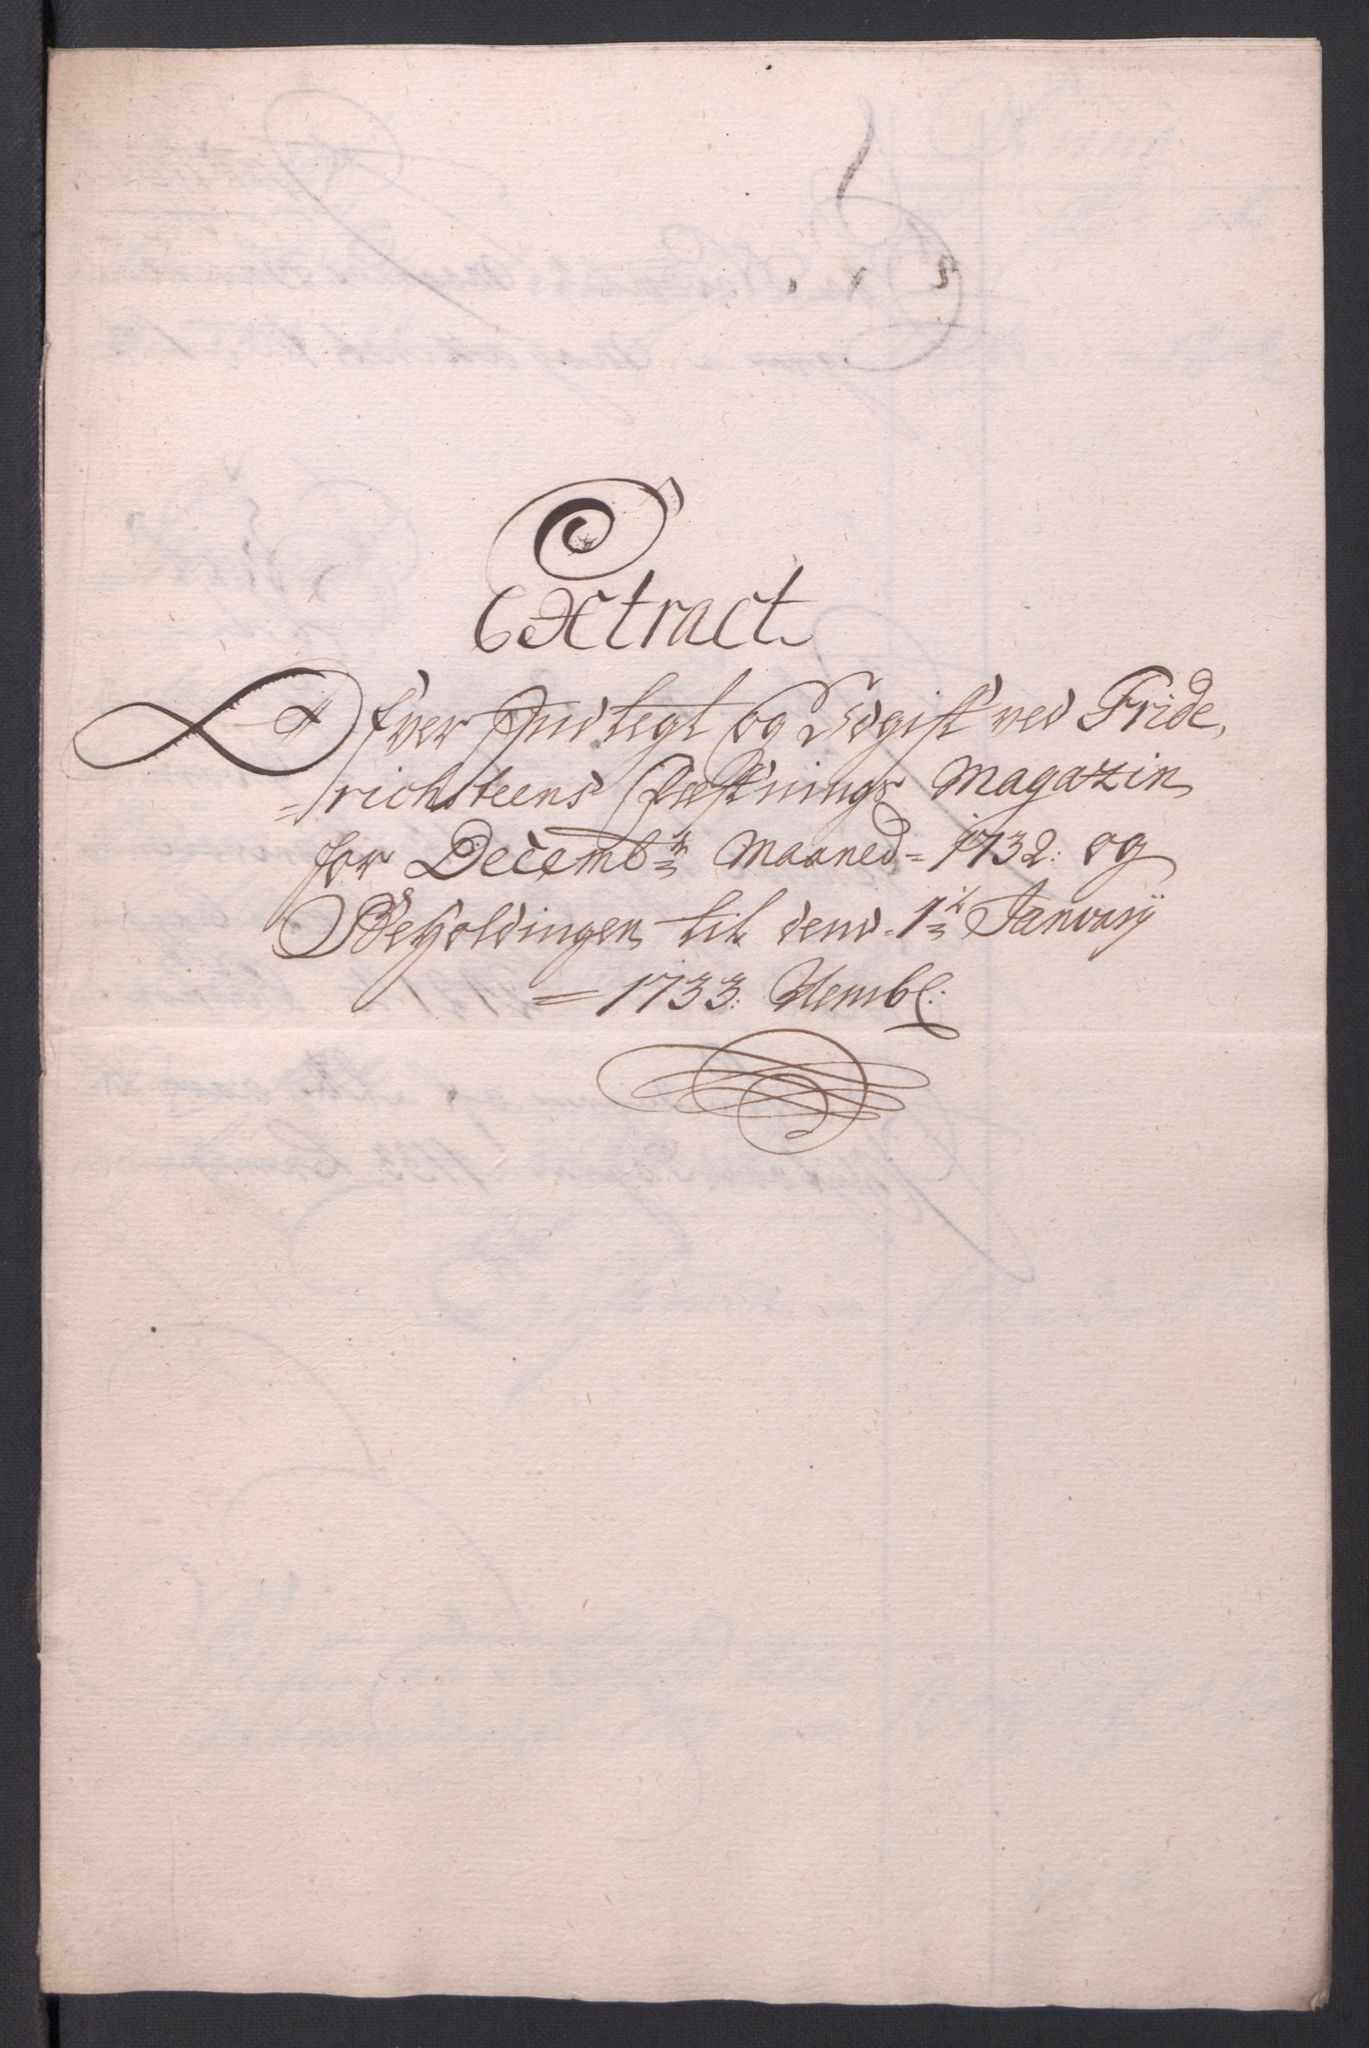 Extract
Ofver Indtegt og Udgift ved Fride,
=richsteens Fæstnings Magazin
for Decembr: Maaned = 1732: og
Beholdingen til dend 1te Januarij
= 1733: Nembl: